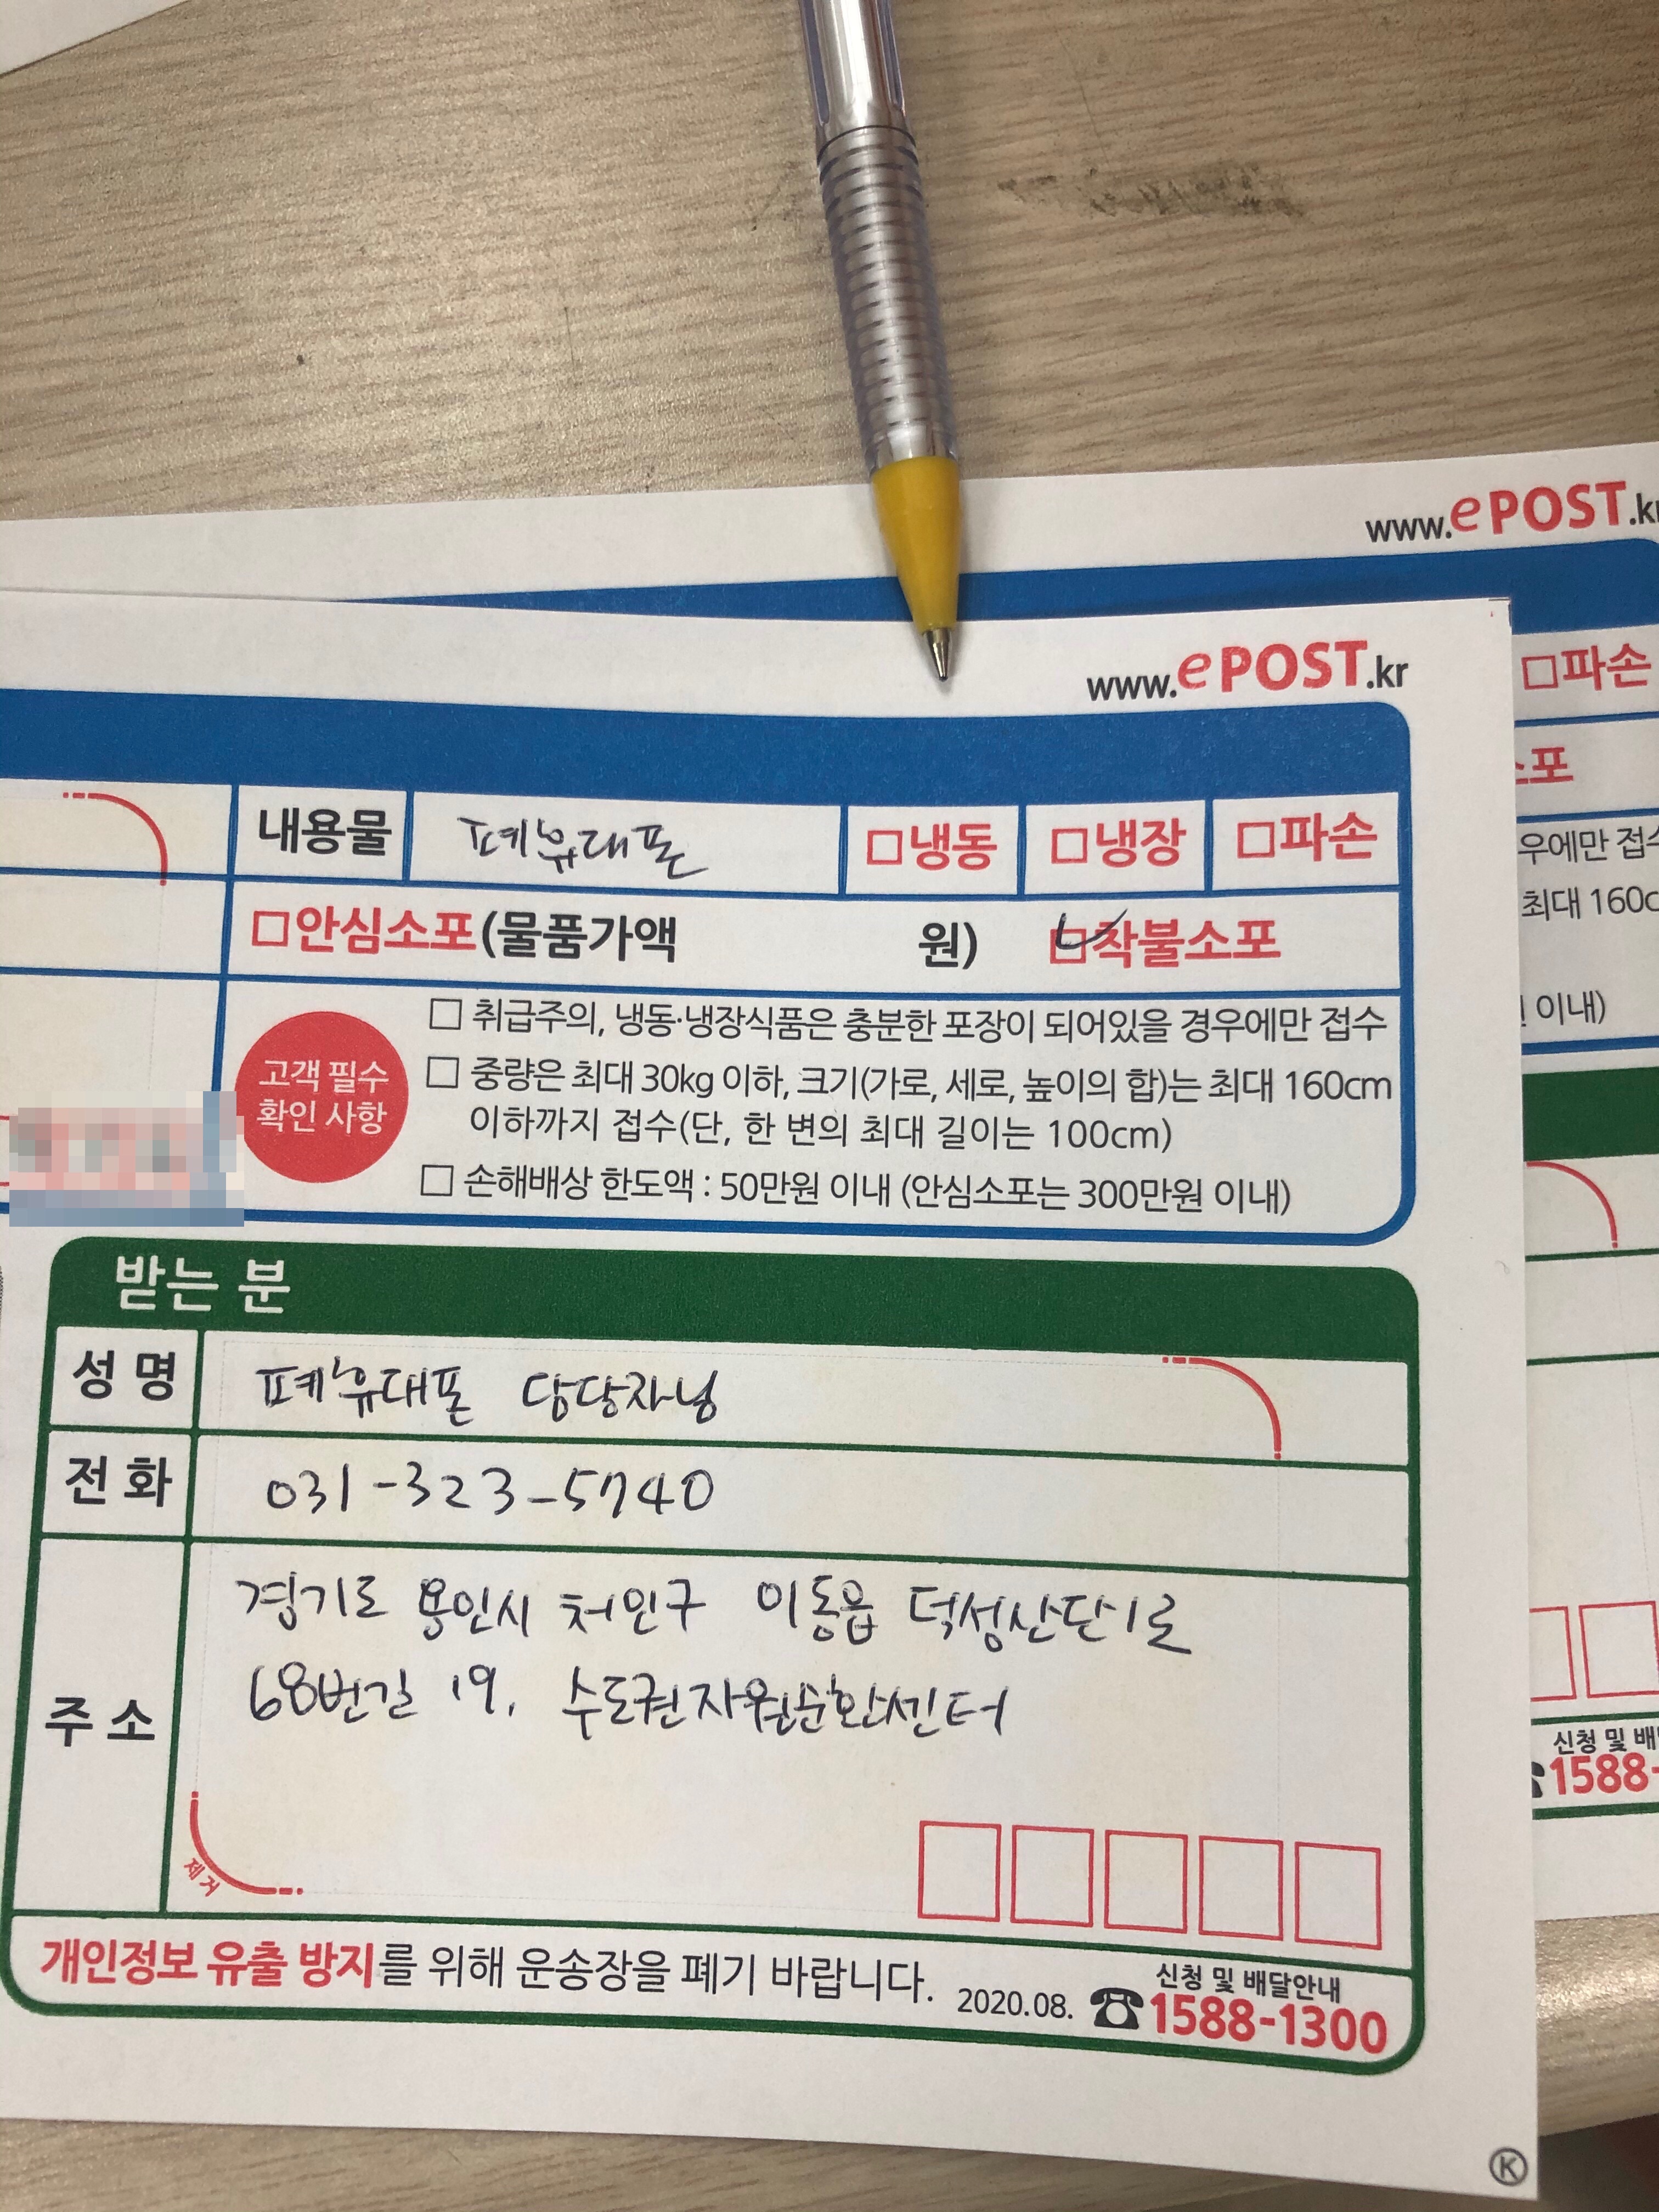 www.ePOST.kr
www.ePOST.kr
□파손
소포
우에만 접수
최대 160c
이내)
신청 및 배
1588-
내용물 폐휴대폰 □냉동 □냉장 □파손
□안심소포(물품가액 원) □착불소포
고객 필수
확인 사항
□ 취급주의, 냉동·냉장식품은 충분한 포장이 되어있을 경우에만 접수
□ 중량은 최대 30kg 이하, 크기(가로, 세로, 높이의 합)는 최대 160cm
이하까지 접수(단, 한 변의 최대 길이는 100cm)
□ 손해배상 한도액 : 50만원 이내 (안심소포는 300만원 이내)
받는 분
성 명 폐휴대폰 담당자님
전 화 031-323-5740
주 소 경기도 용인시 처인구 이동읍 덕성산단1로
68번길 19, 수도권자원순환센터
제거
개인정보 유출 방지를 위해 운송장을 폐기 바랍니다. 2020.08.
신청 및 배달안내
1588-1300
K